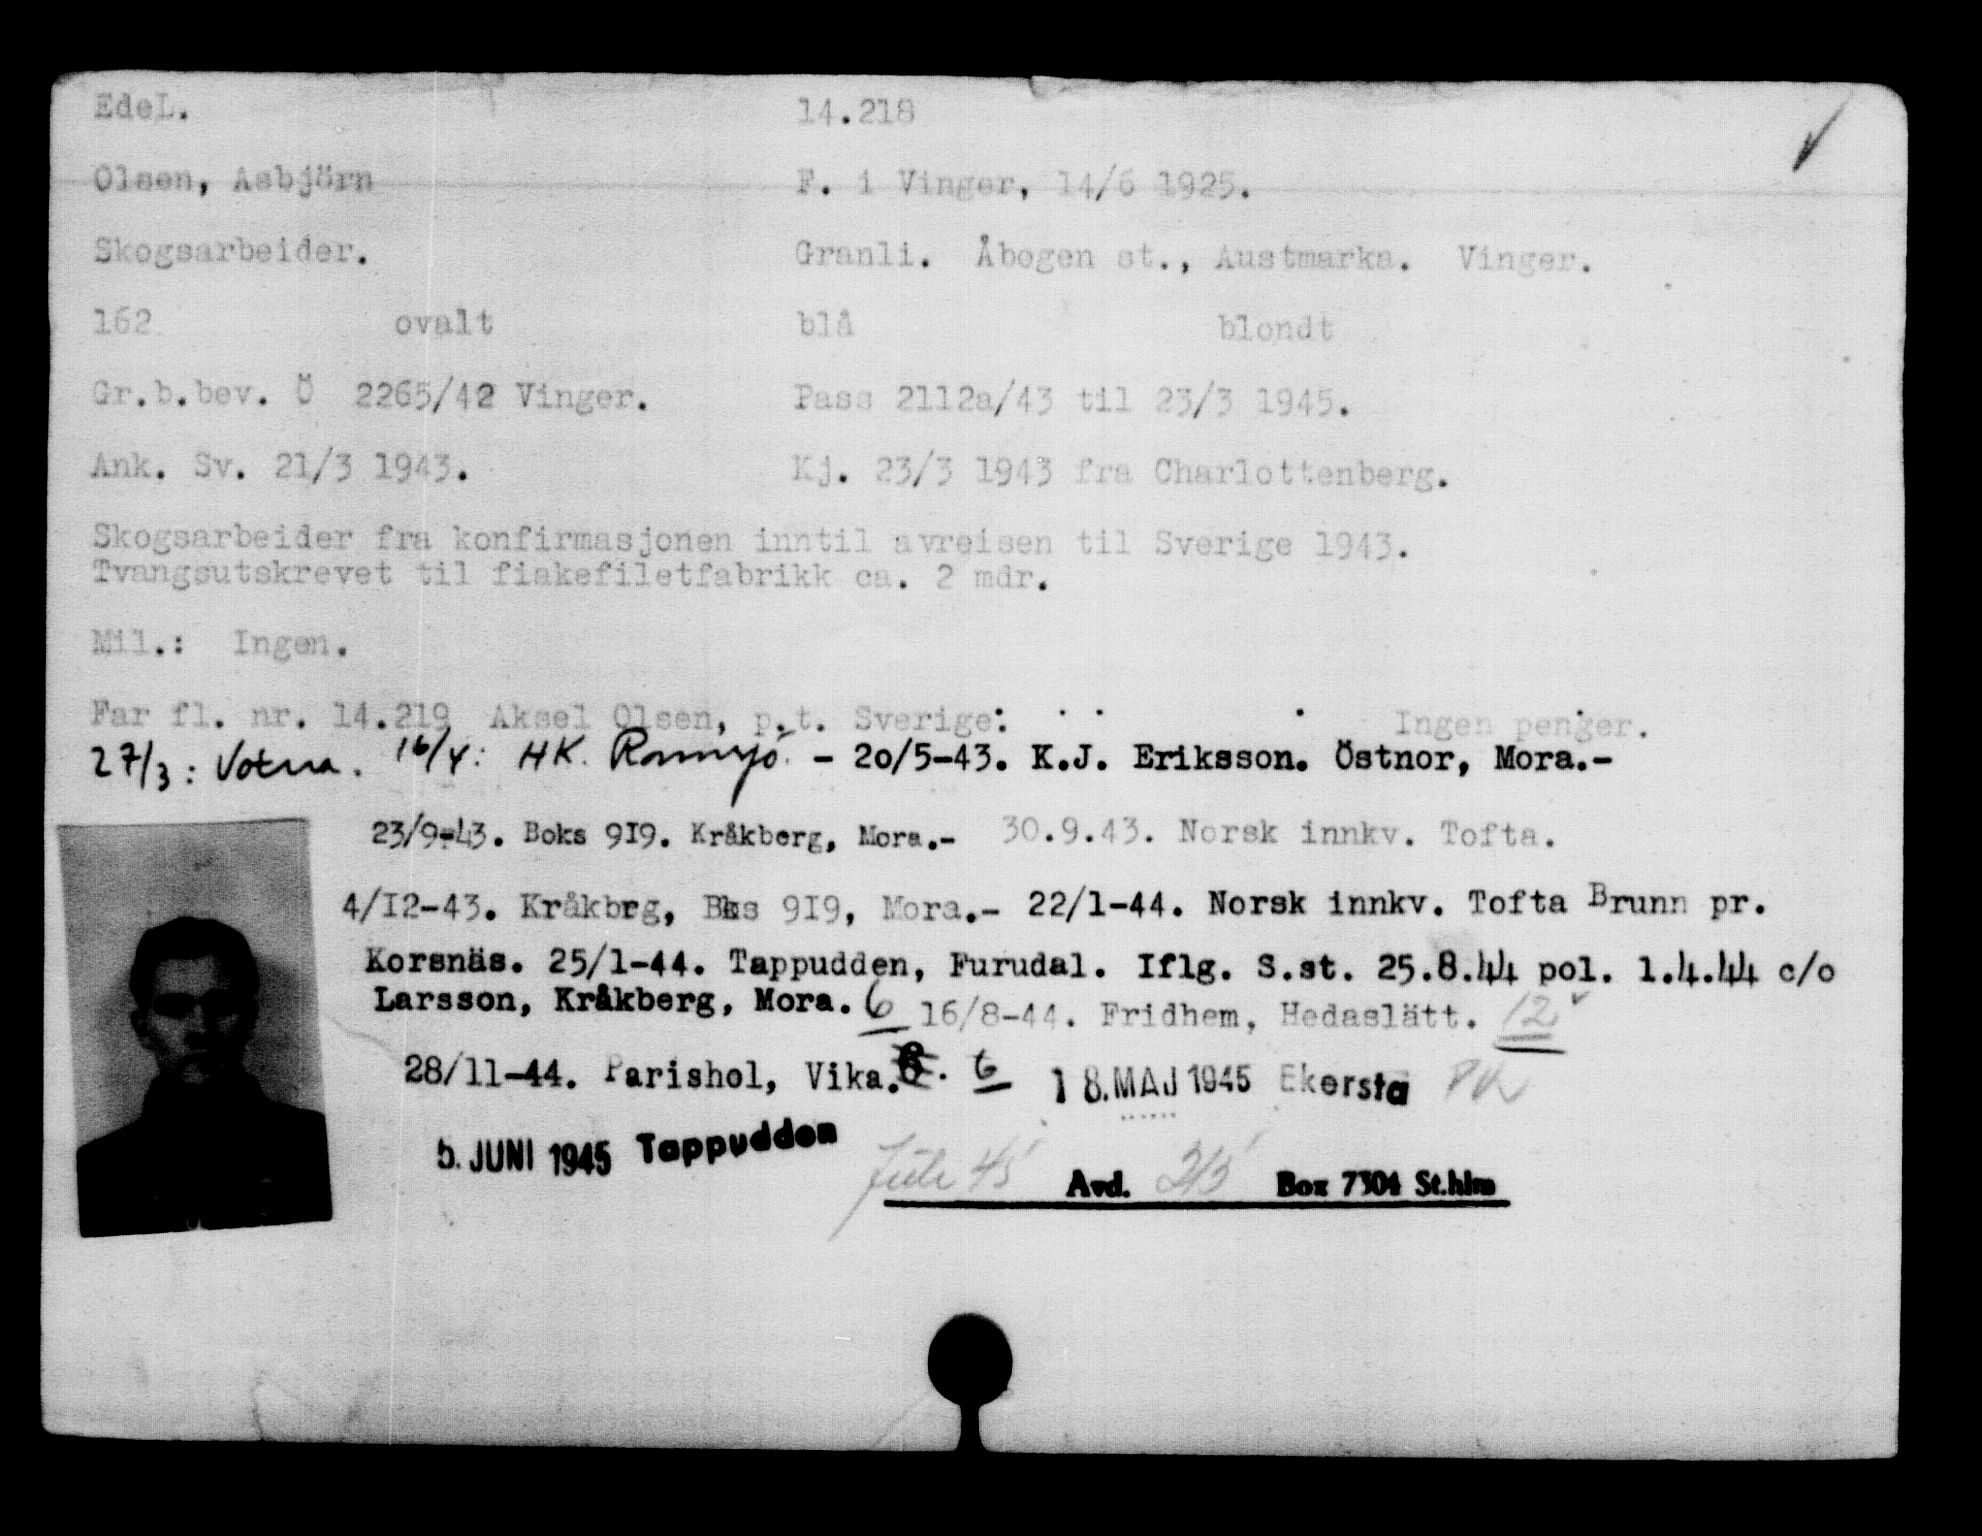 EdeL. 14.218
Olsen, Asbjörn F. i Vinger, 14/6 1925.
Skogsarbeider. Granli. Åbogen st., Austmarka. Vinger.
162 ovalt blå blondt
Gr.b.bev. Ö 2265/42 Vinger. Pass 2112a/43 til 23/3 1945.
Ank. Sv. 21/3 1943. Kj. 23/3 1943 fra Charlottenberg.
Skogsarbeider fra konfirmasjonen inntil avreisen til Sverige 1943.
Tvangsutskrevet til fiakefiletfabrikk ca. 2 mdr.
Mil.: Ingen.
Far fl. nr. 14.219 Aksel Olsen, p.t. Sverige. Ingen penger.
27/3: Votna. 16/4: HK. - 20/5-43. K.J. Eriksson. Östnor, Mora.-
23/9-43. Boks 919. Kråkberg, Mora.- 30.9.43. Norsk innkv. Tofta.
4/12-43. Kråkbrg, Bks 919, Mora.- 22/1-44. Norsk innkv. Tofta Brunn pr.
Korsnäs. 25/1-44. Tappudden, Furudal. Iflg. S.st. 25.8.44 pol. 1.4.44 c/o
Larsson, Kråkberg, Mora. 6 16/8-44. Fridhem, Hedaslätt. 12
28/11-44. Parishol, Vika. 6 18. MAJ 1945 Ekersta
5. JUNI 1945 Tappudden
Juli 45 Avd. 215 Box 7304 St.hlm